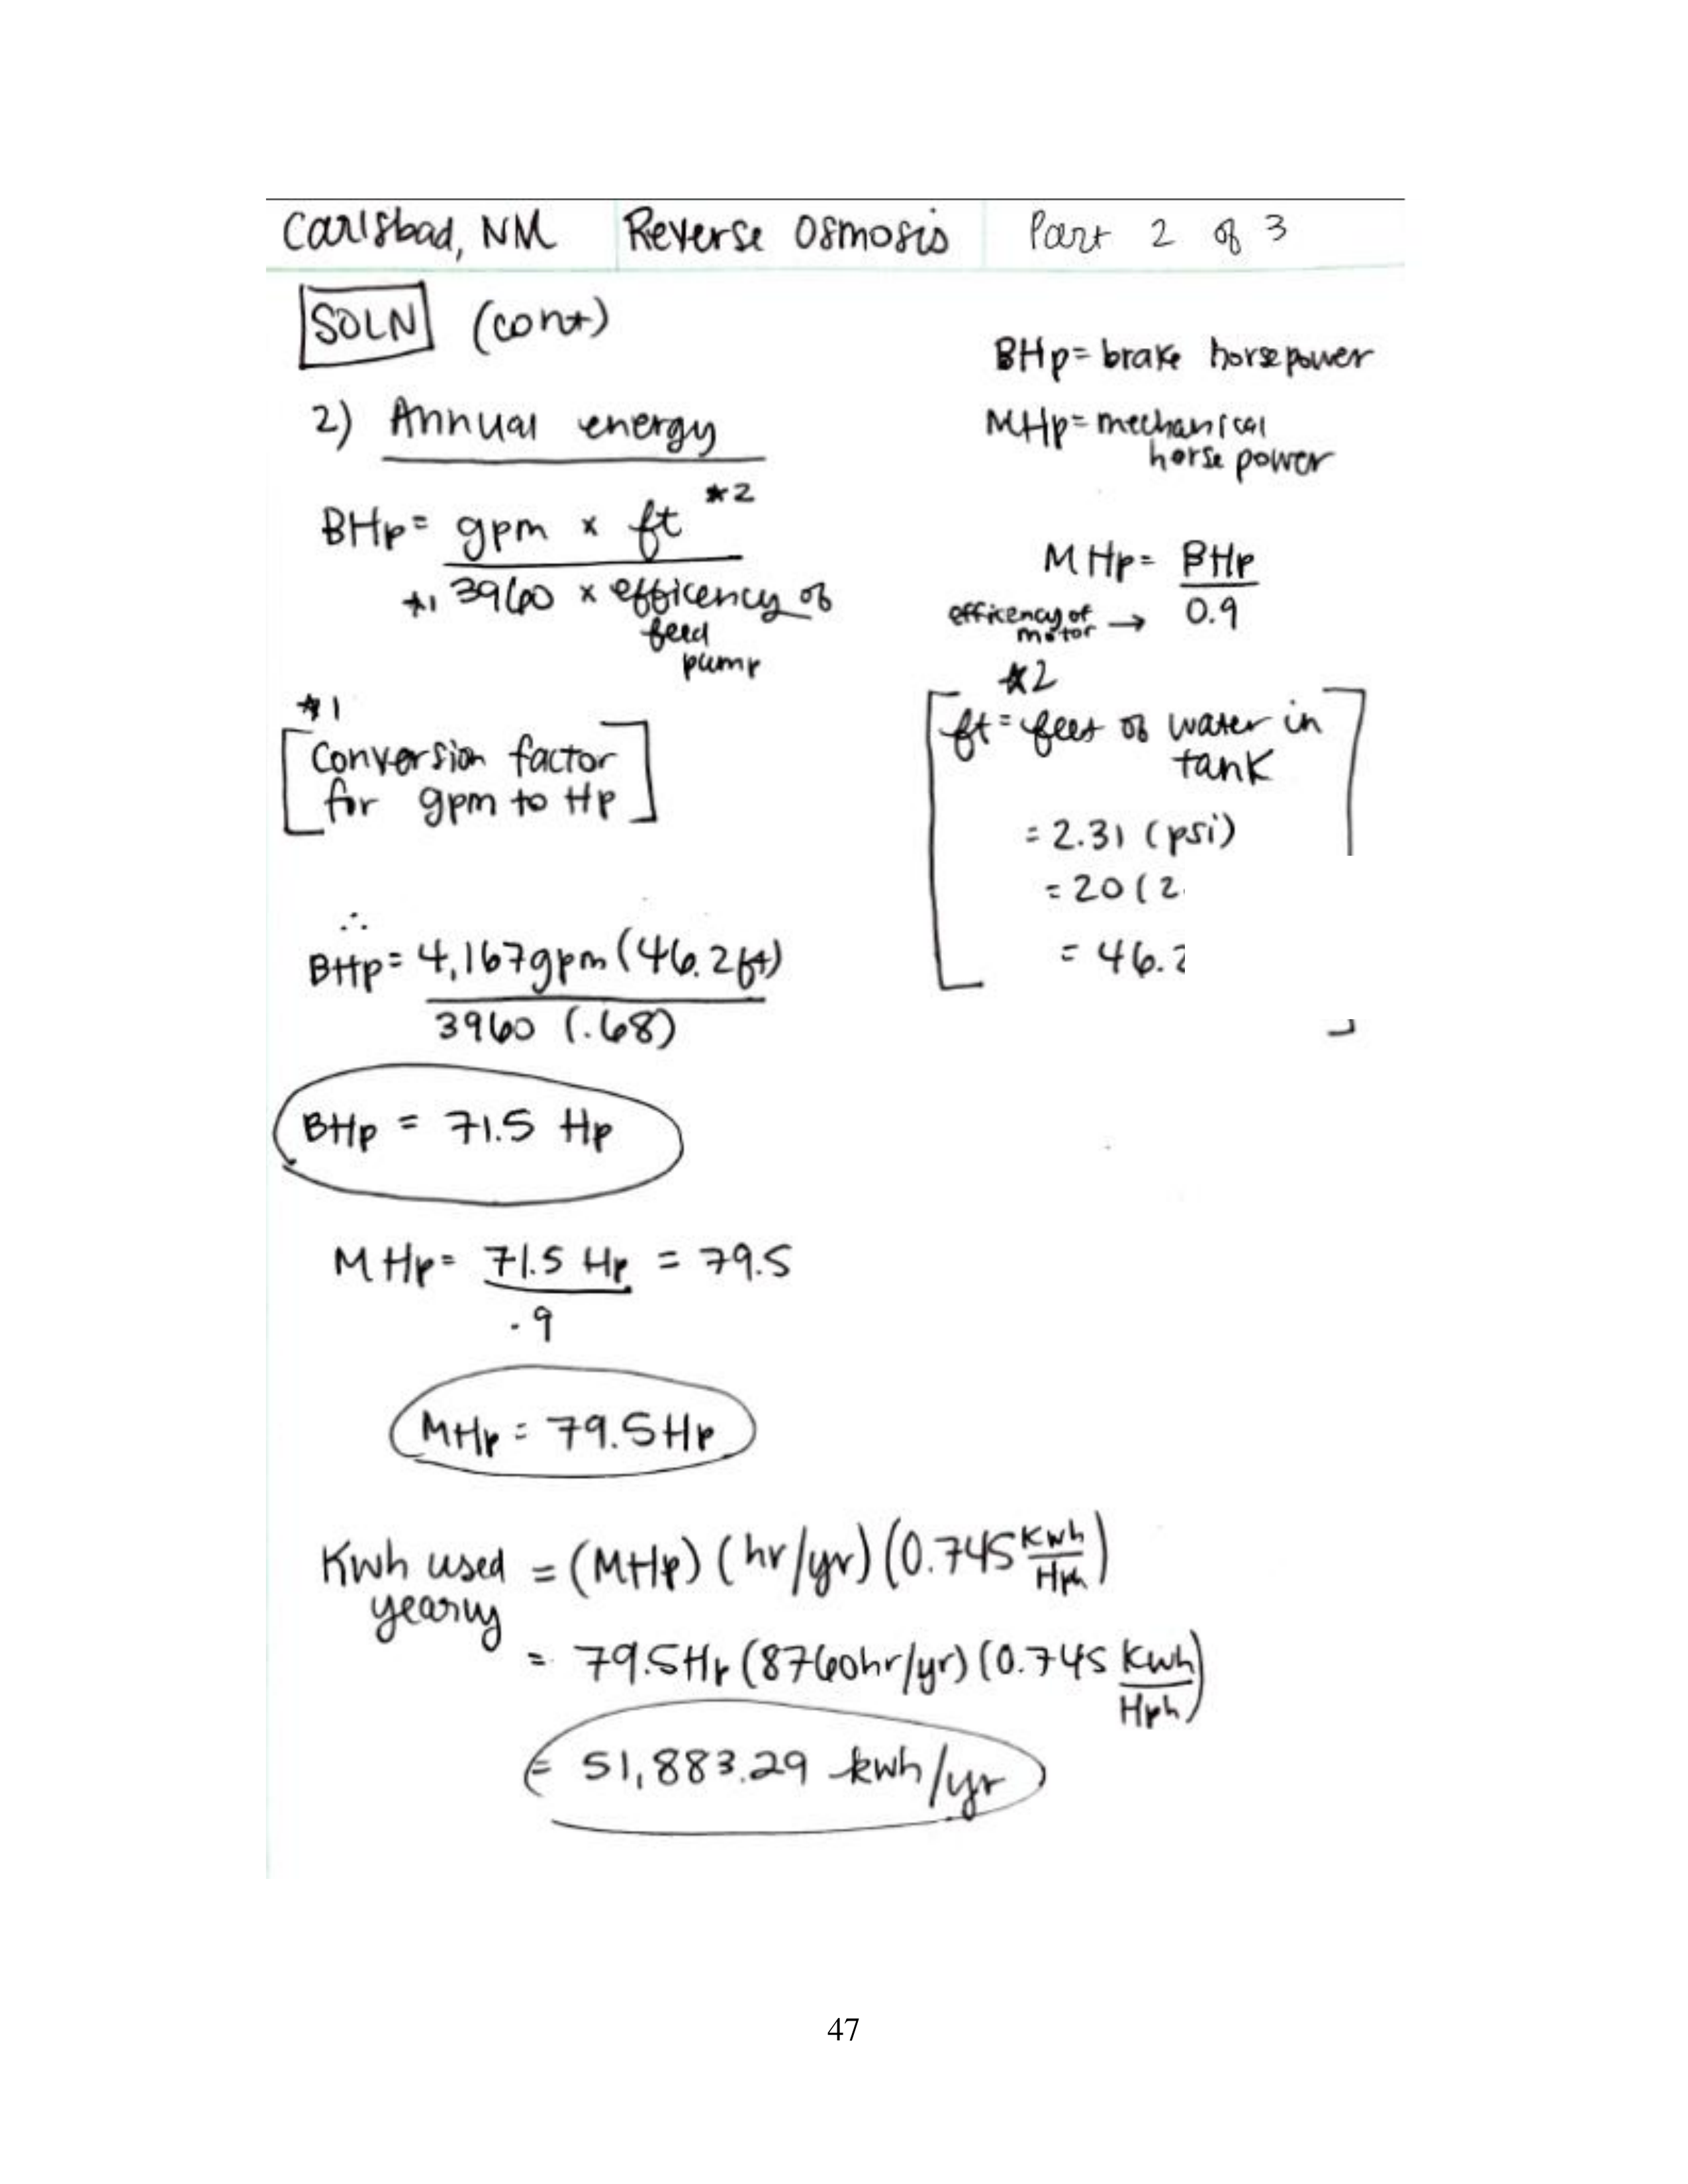 Carlsbad, NM Reverse Osmosis Part 2 of 3
SOLN (cont)
BHp = brake horsepower
MHp = mechanical
horse power
2) Annual energy
BHp = gpm x ft *2
*1 3960 x efficency of
feed
pump
MHp = BHp
0.9
efficency of
motor →
*1
[Conversion factor
for gpm to Hp]
*2
[ft = feet of water in
tank
= 2.31 (psi)
= 20 (2.
= 46.2
∴
BHp = 4,167gpm (46.2ft)
3960 (.68)
BHp = 71.5 Hp
MHp = 71.5 Hp = 79.5
.9
MHp = 79.5 Hp
Kwh used = (MHp) (hr/yr) (0.745 Kwh
Hph)
yearly
= 79.5Hp (8760hr/yr) (0.745 Kwh
Hph)
= 51,883.29 kwh/yr
47